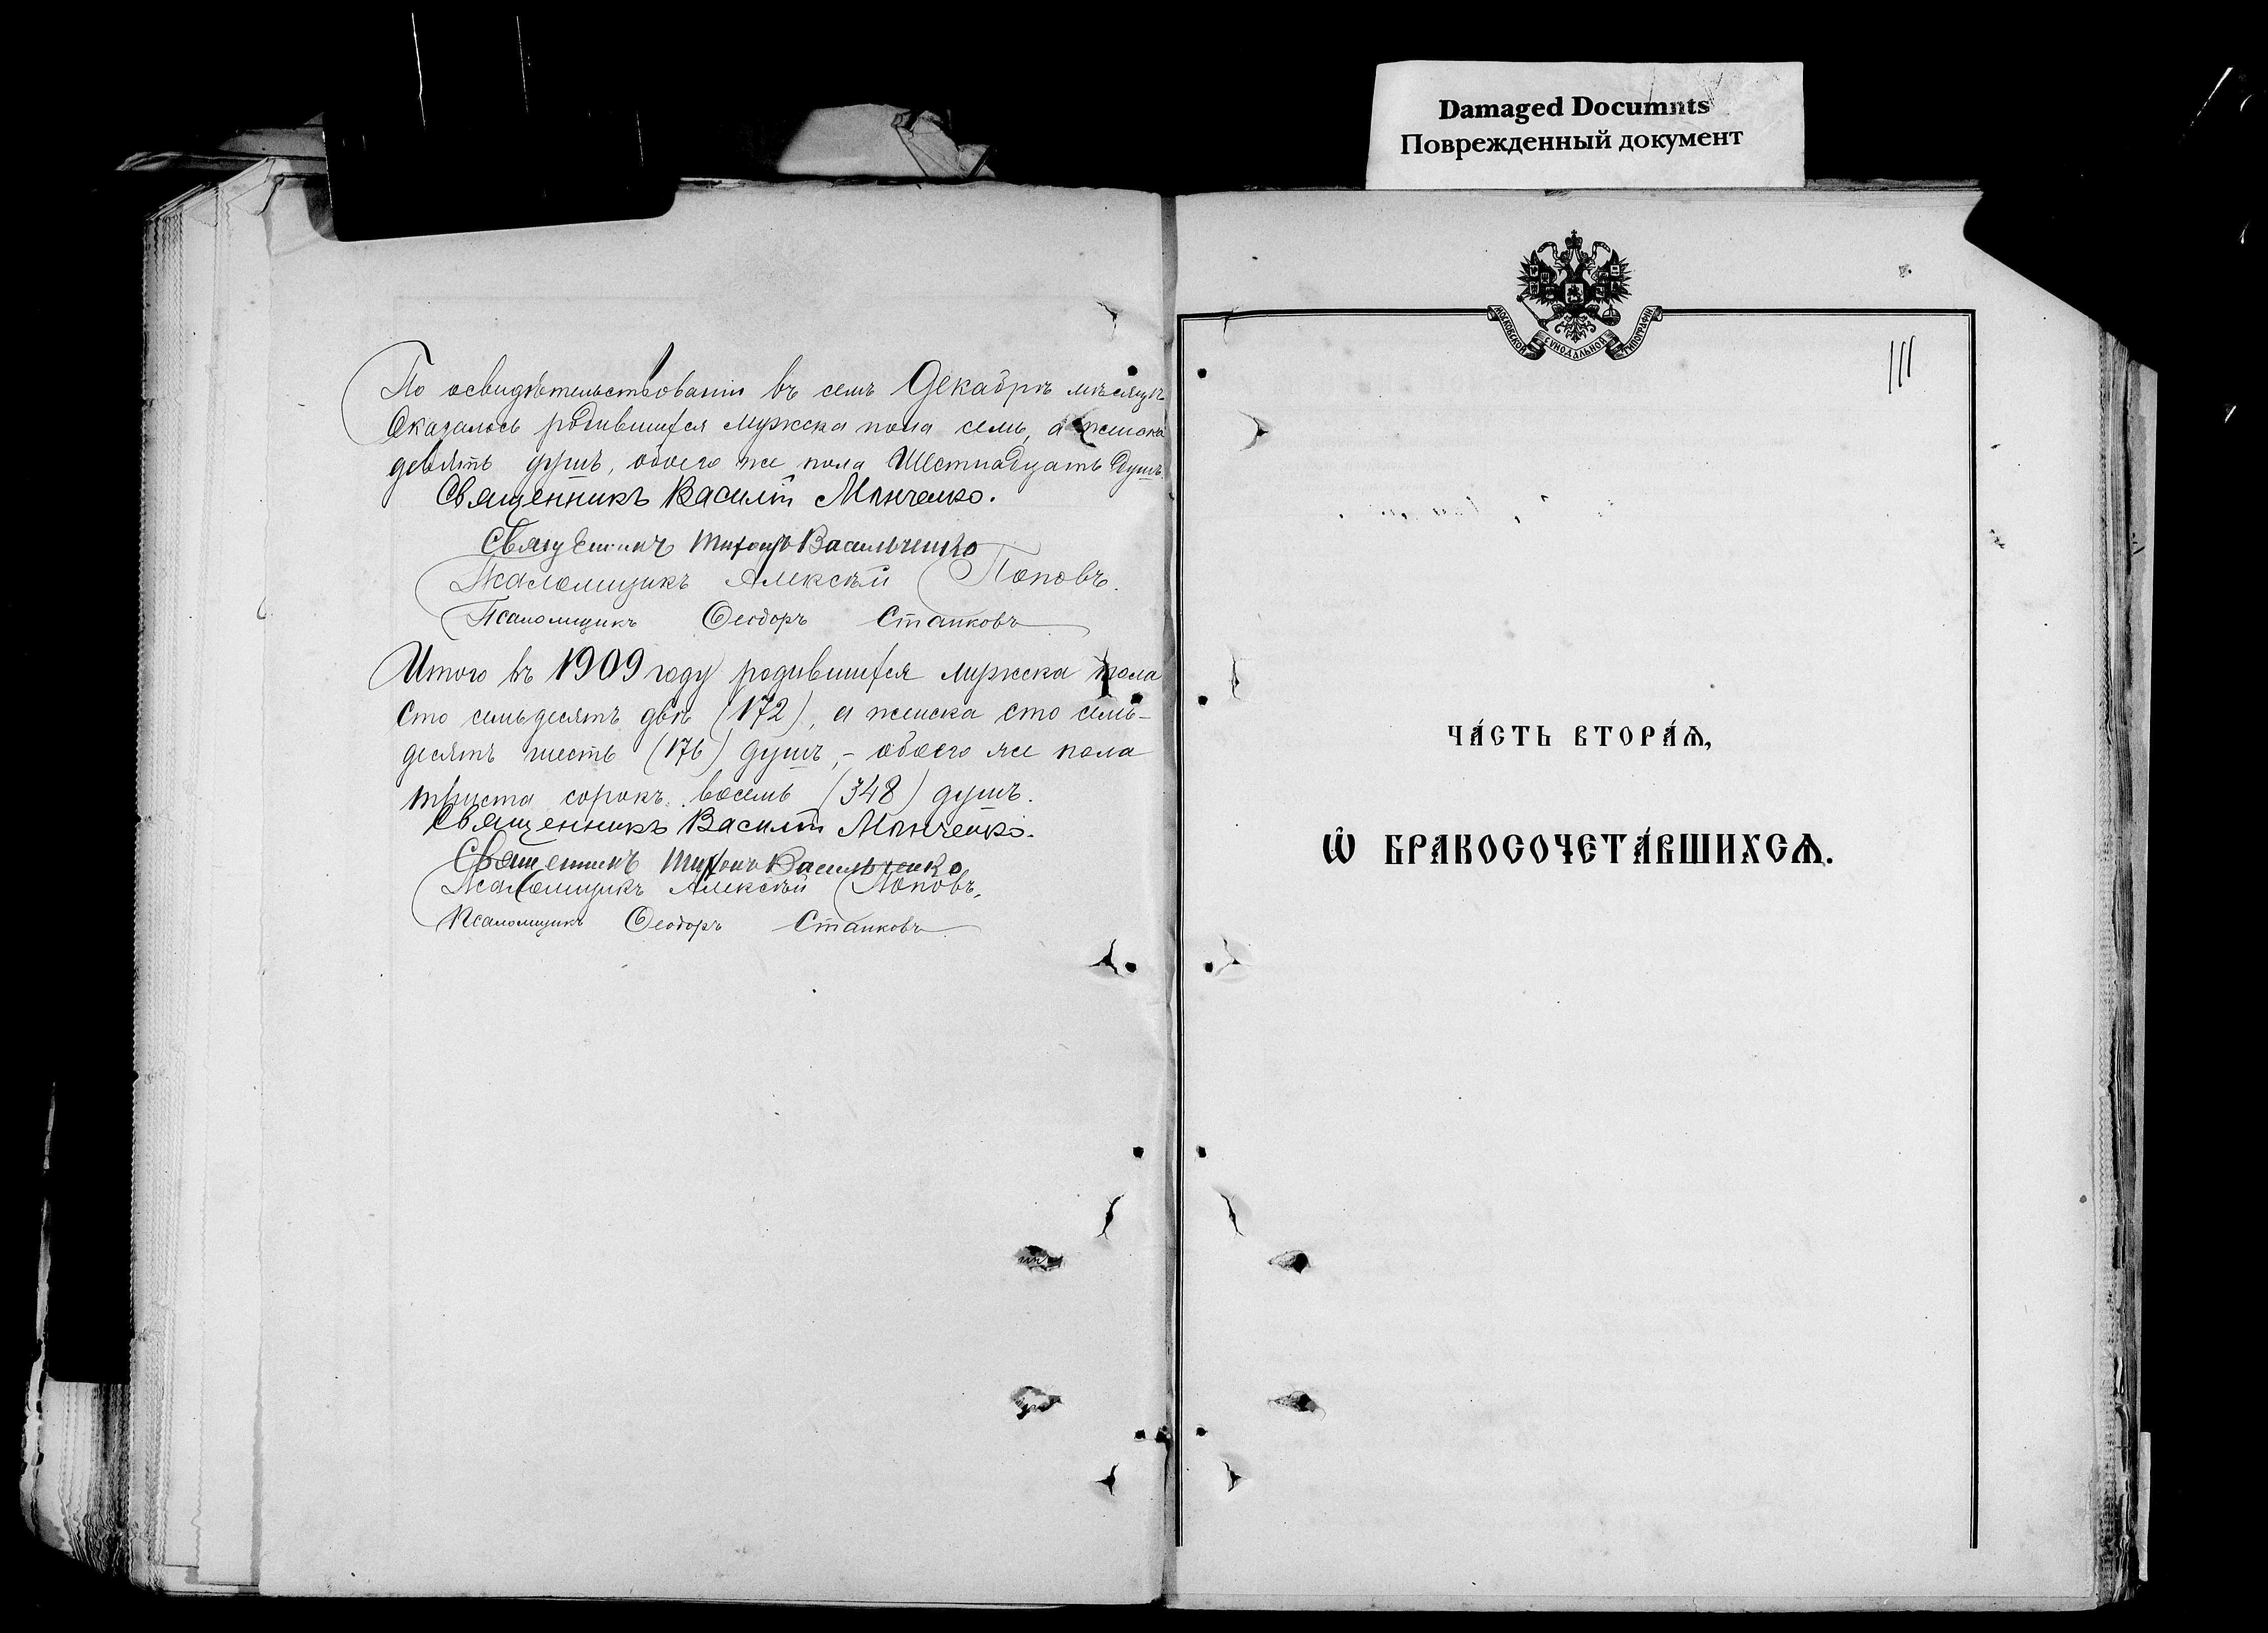 Damaged Documnts
Поврежденный документ
По освидѣтельствованіи въ семъ Декабрѣ мѣсяцѣ
Оказалось родившихся мужска пола семь, а женска
девять душъ, обоего же пола Шестнадцать душъ.
Священникъ Василій Манченко.
Священникъ Тихонъ Васильченко
Псаломщикъ Алексѣй Поповъ.
Псаломщикъ Ѳеодоръ Станковъ
Итого въ 1909 году родившихся мужска пола
Сто семьдесятъ двѣ (172), а женска сто семь-
десятъ шесть (176) душъ, - обоего же пола
триста сорокъ восемь (348) душъ.
Священникъ Василій Манченко.
Священникъ Тихонъ Васильченко
Псаломщикъ Алексѣй Поповъ.
Псаломщикъ Ѳеодоръ Станковъ
МОСКОВСКОЙ СѴНОДАЛЬНОЙ ТИПОГРАФІИ
111
ЧА́СТЬ ВТОРА́Ѧ,
Ѽ БРАКОСОЧЕТА́ВШИХСѦ.